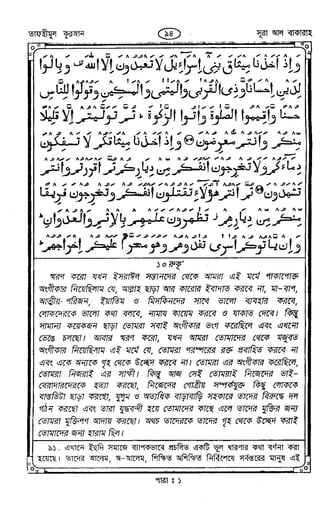 তাফহীমুল কুরআন
৯৪
সূরা আল বাকারাহ
وَإِذْ أَخَذْنَا مِيثَاقَ بَنِي إِسْرَائِيلَ لَا تَعْبُدُونَ إِلَّا اللَّهَ وَبِالْوَا
لِدَيْنِ إِحْسَانًا وَذِي الْقُرْبَىٰ وَالْيَتَامَىٰ وَالْمَسَاكِينِ وَقُولُوا لِلنَّاسِ
حُسْنًا وَأَقِيمُوا الصَّلَاةَ وَآتُوا الزَّكَاةَ ثُمَّ تَوَلَّيْتُمْ إِلَّا قَلِيلًا
مِنْكُمْ وَأَنْتُمْ مُعْرِضُونَ وَإِذْ أَخَذْنَا مِيثَاقَكُمْ لَا تَسْفِكُونَ
دِمَاءَكُمْ وَلَا تُخْرِجُونَ أَنْفُسَكُمْ مِنْ دِيَارِكُمْ ثُمَّ أَقْرَرْتُمْ وَأَنْتُمْ
تَشْهَدُونَ ثُمَّ أَنْتُمْ هَٰؤُلَاءِ تَقْتُلُونَ أَنْفُسَكُمْ وَتُخْرِجُونَ فَرِيقًا
مِنْكُمْ مِنْ دِيَارِهِمْ تَظَاهَرُونَ عَلَيْهِمْ بِالْإِثْمِ وَالْعُدْوَانِ
وَإِنْ يَأْتُوكُمْ أُسَارَىٰ تُفَادُوهُمْ وَهُوَ مُحَرَّمٌ عَلَيْكُمْ إِخْرَاجُهُمْ
১০ রুকূ'
স্মরণ করো যখন ইসরাঈল সন্তানদের থেকে আমরা এই মর্মে পাকাপোক্ত
অংগীকার নিয়েছিলাম যে, আল্লাহ ছাড়া আর কারোর ইবাদাত করবে না, মা-বাপ,
আত্মীয়-পরিজন, ইয়াতিম ও মিসকিনদের সাথে ভালো ব্যবহার করবে,
লোকদেরকে ভালো কথা বলবে, নামায কায়েম করবে ও যাকাত দেবে। কিন্তু
সামান্য কয়েকজন ছাড়া তোমরা সবাই অংগীকার ভংগ করেছিলে এবং এখনো
ভেঙে চলছো। আবার স্মরণ করো, যখন আমরা তোমাদের থেকে মজবুত
অংগীকার নিয়েছিলাম এই মর্মে যে, তোমরা পরস্পরের রক্ত প্রবাহিত করবে না
এবং একে অন্যকে গৃহ থেকে উচ্ছেদ করবে না। তোমরা এর অংগীকার করেছিলে,
তোমরা নিজরাই এর সাক্ষী। কিন্তু আজ সেই তোমরাই নিজেদের ভাই-
বেরাদারদেরকে হত্যা করছো, নিজেদের গোত্রীয় সম্পর্কযুক্ত কিছু লোককে
বাস্তভিটা ছাড়া করছো, যুলুম ও অত্যধিক বাড়াবাড়ি সহকারে তাদের বিরুদ্ধে দল
গঠন করছো এবং তারা যুদ্ধবন্দী হয়ে তোমাদের কাছে এলে তাদের মুক্তির জন্য
তোমরা মুক্তিপণ আদায় করছো। অথচ তাদেরকে তাদের গৃহ থেকে উচ্ছেদ করাই
তোমাদের জন্য হারাম ছিল।
৯১. এখানে ইহুদি সমাজে ব্যাপকভাবে প্রচলিত একটি ভুল ধারণার কথা বর্ণনা করা
হয়েছে। তাদের আলেম, অ-আলেম, শিক্ষিত অশিক্ষিত নির্বিশেষে সর্বস্তরের মানুষ এই
পারা : ১